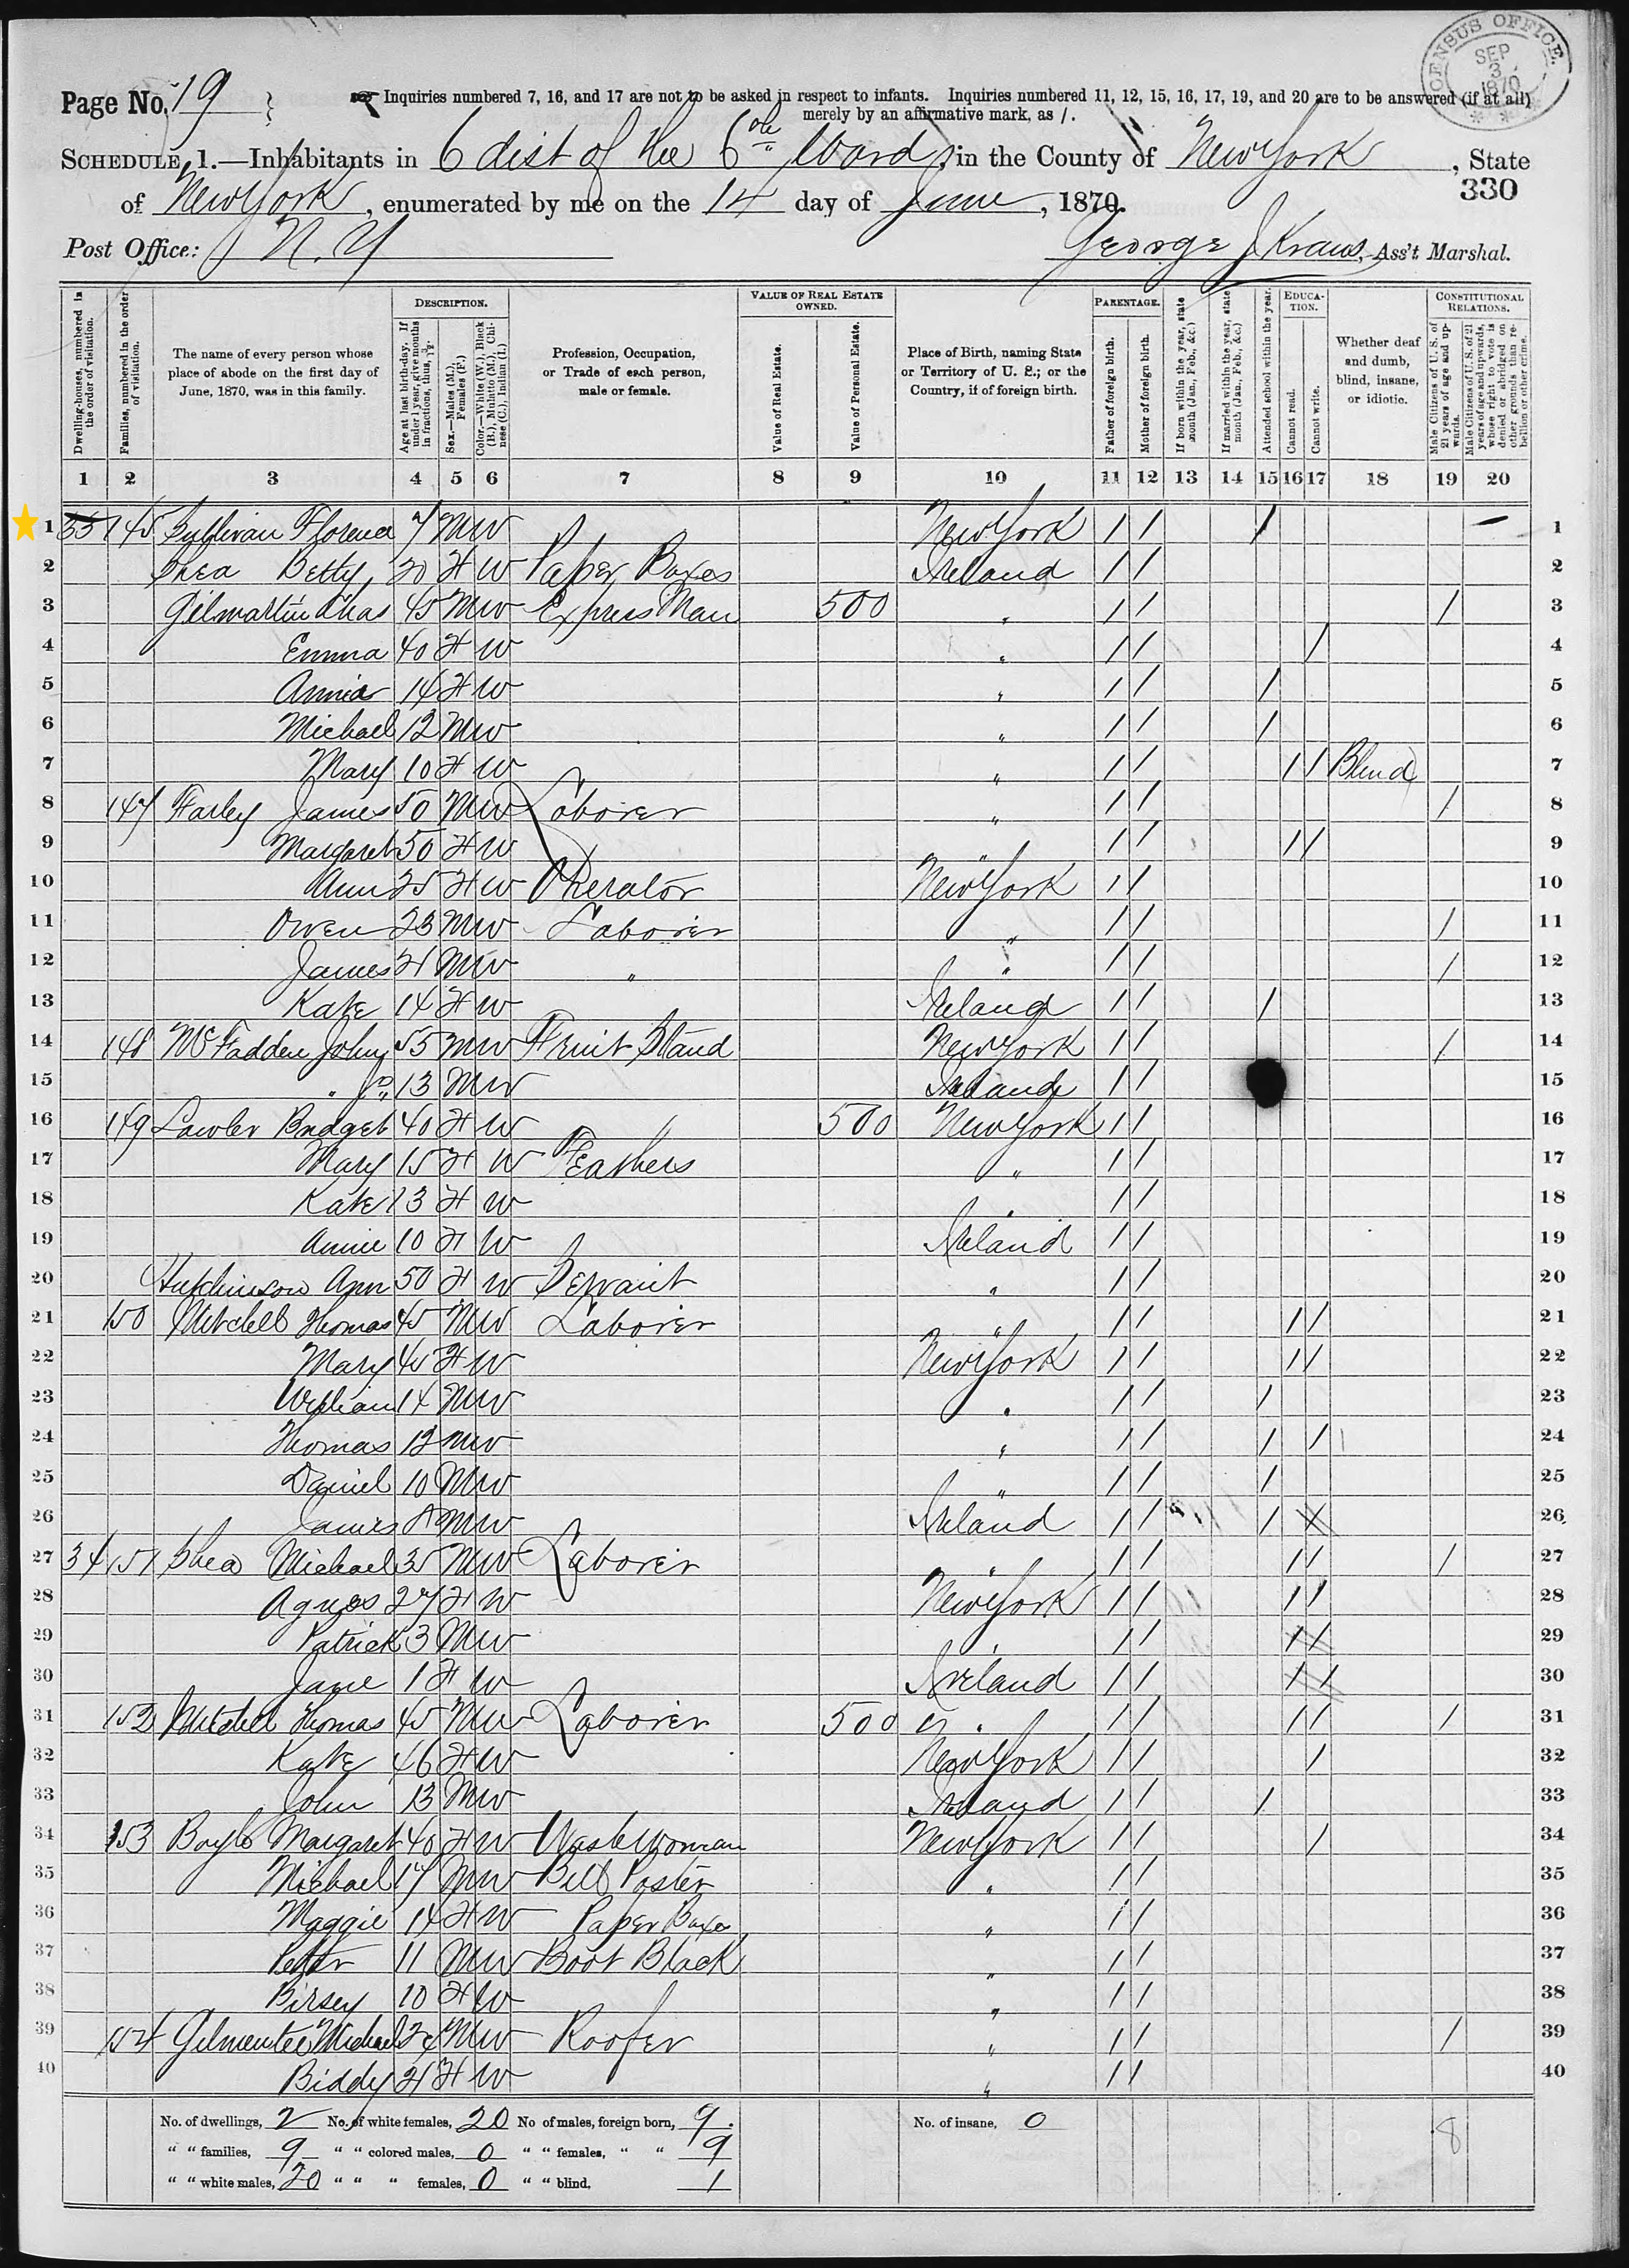 CENSUS OFFICE.
SEP
3
1870
Page No. 19
Inquiries numbered 7, 16, and 17 are not to be asked in respect to infants. Inquiries numbered 11, 12, 15, 16, 17, 19, and 20 are to be answered (if at all)
merely by an affirmative mark, as /.
SCHEDULE 1.—Inhabitants in 6 dist of the 6th Ward, in the County of New York, State
330
of New York, enumerated by me on the 14 day of June, 1870.
Post Office: N. Y George J Kraus, Ass't Marshal.
Dwelling-houses, numbered in the order of visitation.
Families, numbered in the order of visitation.
The name of every person whose place of abode on the first day of June, 1870, was in this family.
DESCRIPTION.
Age at last birth-day. If under 1 year, give months in fractions, thus, 3/12.
Sex.—Males (M.), Females (F.)
Color.—White (W.), Black (B.), Mulatto (M.), Chinese (C.), Indian (I.)
Profession, Occupation, or Trade of each person, male or female.
VALUE OF REAL ESTATE OWNED.
Value of Real Estate.
Value of Personal Estate.
Place of Birth, naming State or Territory of U. S.; or the Country, if of foreign birth.
PARENTAGE.
Father of foreign birth.
Mother of foreign birth.
If born within the year, state month (Jan., Feb., &c.)
If married within the year, state month (Jan., Feb., &c.)
Attended school within the year.
EDUCATION.
Cannot read.
Cannot write.
Whether deaf and dumb, blind, insane, or idiotic.
CONSTITUTIONAL RELATIONS.
Male Citizens of U. S. of 21 years of age and upwards.
Male Citizens of U. S. of 21 years of age and upwards, whose right to vote is denied or abridged on other grounds than rebellion or other crime.
1 2 3 4 5 6 7 8 9 10 11 12 13 14 15 16 17 18 19 20
1 33 145 Sullivan Florence 7 M W New York / / / - 1
2 Shea Betty 20 F W Paper Boxes Ireland / / 2
3 Gilmartin Chas 45 M W Express Man 500 " / / / 3
4 Emma 40 F W " / / / 4
5 Annie 14 F W " / / / 5
6 Michael 12 M W " / / / 6
7 Mary 10 F W " / / / / Blind 7
8 147 Farley James 50 M W Laborer " / / / 8
9 Margaret 50 F W " / / / / 9
10 Ann 25 F W Operator New York / / 10
11 Owen 23 M W Laborer " / / / 11
12 James 21 M W " " / / / 12
13 Kate 14 F W Ireland / / / 13
14 148 McFadden John 55 M W Fruit Stand New York / / / 14
15 " Jr 13 M W Ireland / / 15
16 149 Lawler Bridget 40 F W 500 New York / / 16
17 Mary 15 F W Feathers " / / 17
18 Kate 13 F W " / / 18
19 Annie 10 F W Ireland / / 19
20 Hutchinson Ann 50 F W Servant " / / 20
21 150 Mitchell Thomas 45 M W Laborer " / / / / 21
22 Mary 40 F W New York / / / / 22
23 William 14 M W " / / / 23
24 Thomas 12 M W " / / / / 24
25 Daniel 10 M W " / / / 25
26 James 8 M W Ireland / / / X 26
27 34 151 Shea Michael 35 M W Laborer " / / / / / 27
28 Agnes 27 F W New York / / / / 28
29 Patrick 3 M W " / / / / 29
30 Jane 1 F W Ireland / / / / 30
31 152 Mitchell Thomas 45 M W Laborer 500 " / / / / / 31
32 Kate 46 F W New York / / / 32
33 John 13 M W Ireland / / / 33
34 153 Boyle Margaret 40 F W Wash Woman New York / / / 34
35 Michael 17 M W Bill Poster " / / 35
36 Maggie 14 F W Paper Boxes " / / 36
37 Peter 11 M W Boot Black " / / 37
38 Birsey 10 F W " / / 38
39 154 Michael 24 M W Roofer " / / / 39
40 Biddy 21 F W " / / 40
No. of dwellings, 2 No. of white females, 20 No of males, foreign born, 9. No. of insane, 0 8
" " families, 9 " " colored males, 0 " " females, " " 9
" " white males, 20 " " " females, 0 " " blind, 1